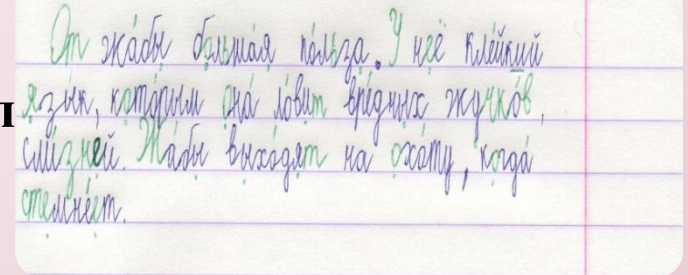 От жа́бы больша́я по́льза. У неё кле́йкий
П язы́к, кото́рым она́ ло́вит вре́дных жучко́в,
слизне́й. Жа́бы выхо́дят на охо́ту, когда́
стемне́ет.